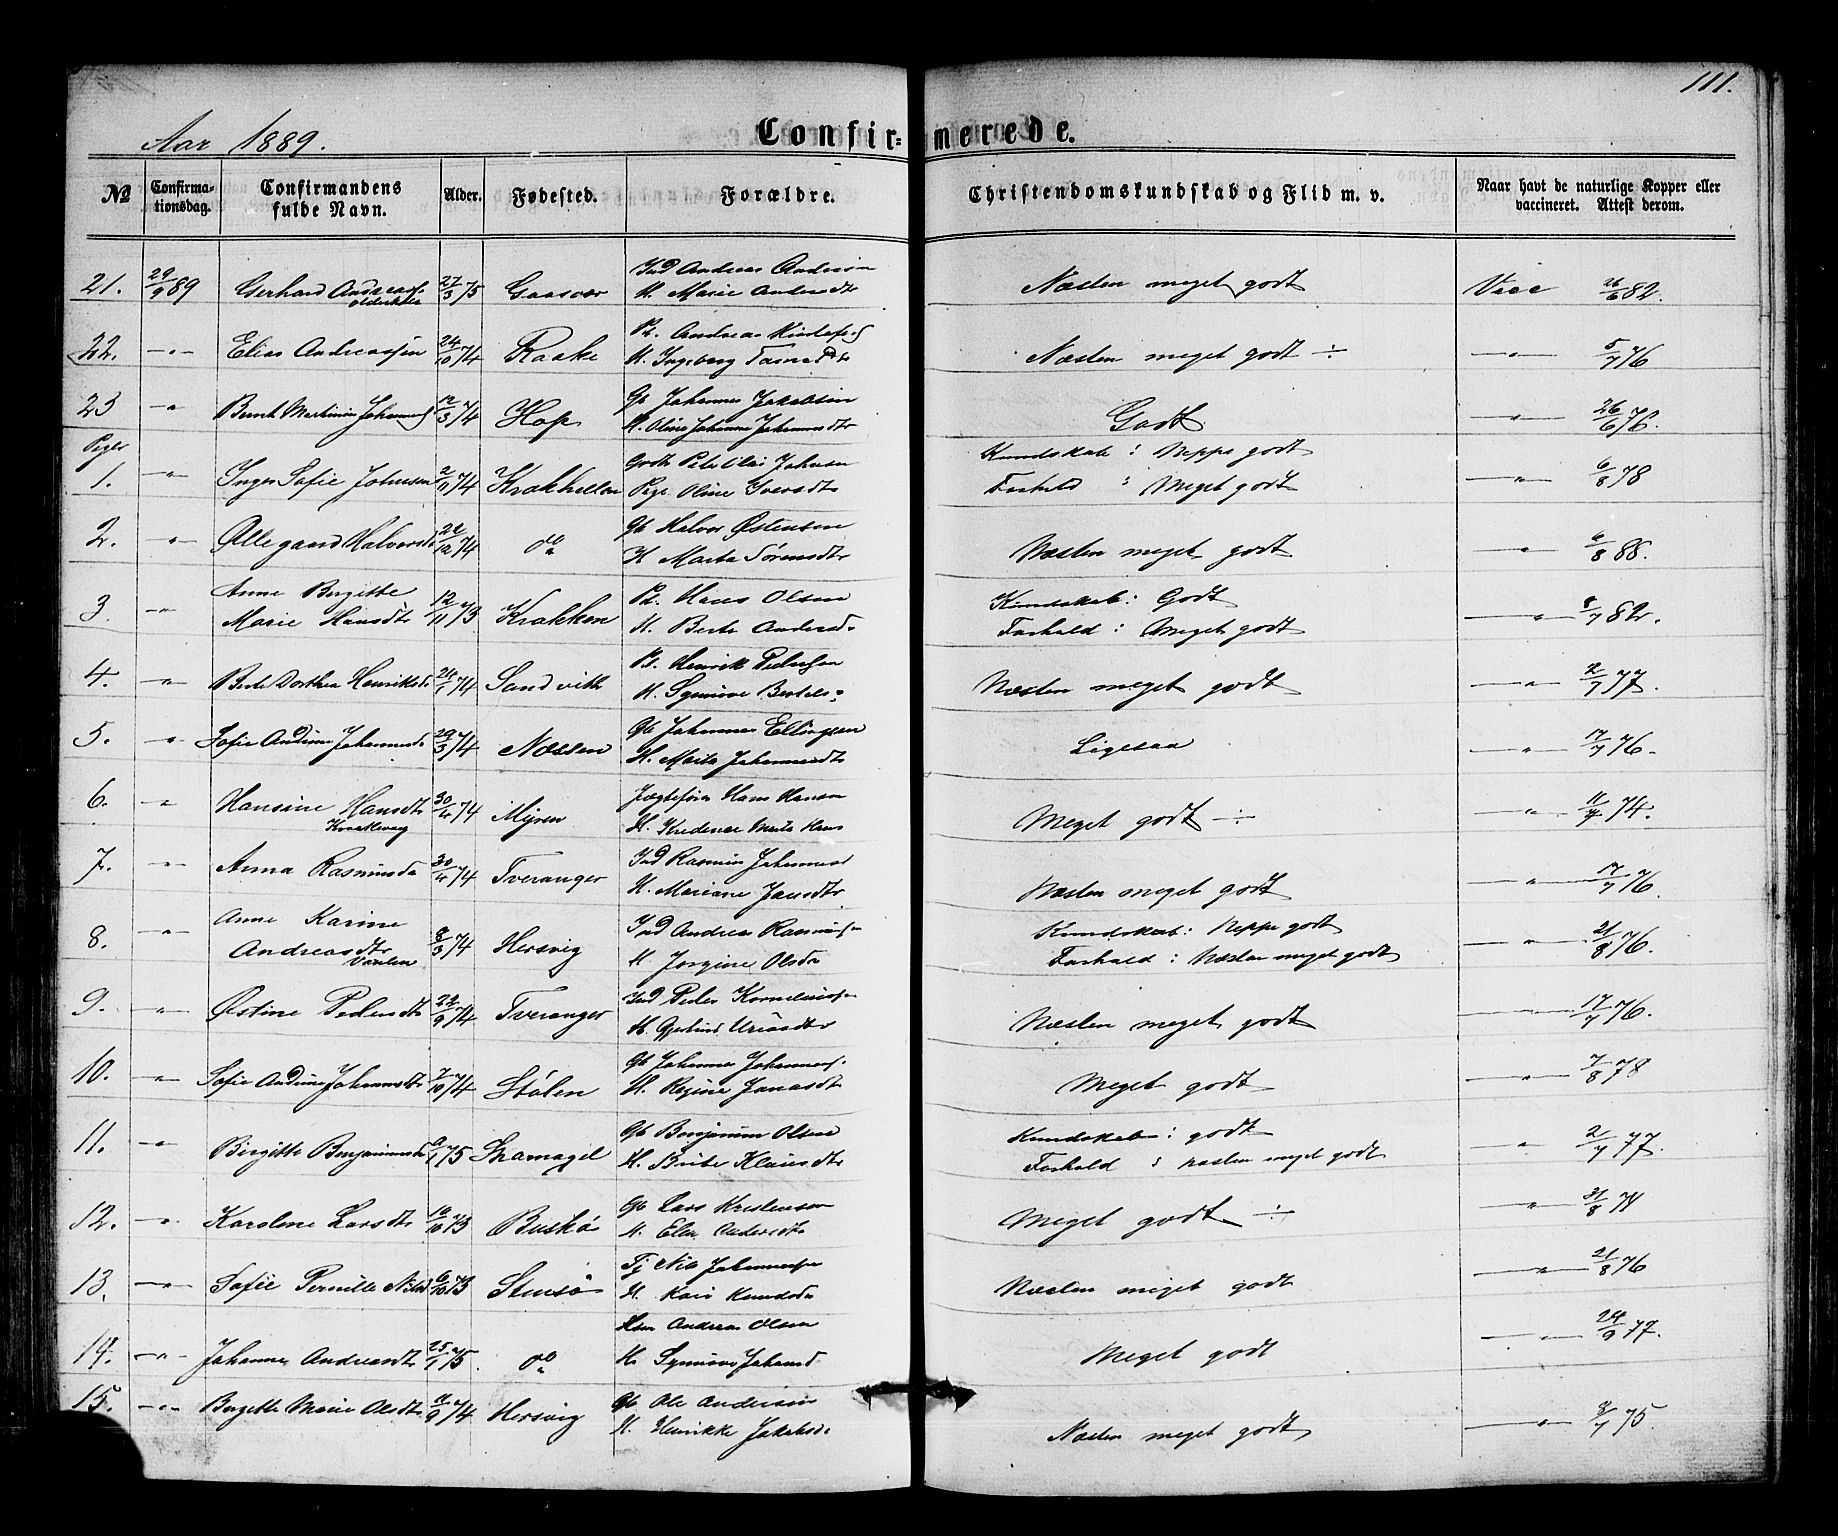 111.
Aar 1889.
Confir= merede.
No
Confirma-
tionsdag.
Confirmandens
fulde Navn.
Alder.
Fødested.
Forældre.
Christendomskundskab og Flid m. v.
Naar havt de naturlige Kopper eller
vaccineret. Attest derom.
21. 29/9 89 Gerhard Andreass. 27/3 75 Gaasvær Ind Andreas M. Marie Næsten meget godt Vacc 26/6 82.
22. —"— Elias Andreassen 24/10 74 Raake M. Ingeborg Næsten meget godt ÷ —"— 5/7 76
23 " Bernt Martinus Johanness 12/3 74 Hop Gb Johannes Jakobsen M. Oline Johanne Godt —"— 26/6 76.
Piger
1. —"— Inger Sofie Johnsen 2/11 74 Krakhellen Peter Elias Johnsen Pige Oline Iversdtr Kundskab : Neppe godt
Forhold : Meget godt —"— 6/8 78
2. —"— Øllegaard Halvorsd 24/12 74 do Gb Halvor Østensen H Marta Sørensdtr Næsten meget godt —"— 6/8 88.
3. —"— Anne Birgitte
Marie Hansdtr 12/11 73 Krakken Hans Olsen M. Berte Andersd. Kundskab: Godt
Forhold : Meget godt —"— 8/7 82.
4. —"— Berte Dorthea Henriksd. 26/1 74 Sandvik Henrik Pedersen M. Synnøve Næsten meget godt —"— 2/7 77.
5. —"— Sofie Andrine Johannesd. 29/3 74 Næssen Gb Johannes Ellingsen H. Marta Johannesdtr Ligesaa —"— 17/7 76.
6. " Hansine Hansdtr
Krakkevaag 30/4 74 Myren Jægtefører Hans Hansen H. Meget godt ÷ —"— 74.
7. —"— Anna Rasmusd. 30/4 74 Tveranger Ind Rasmus Johanness H. Mariane Jansdtr Næsten meget godt —"— 17/7 76.
8. —"— Anne Karine
Andreasdtr
8/3 74 Hersvig Ind Andreas Rasmuss. M Jorgine Olsdtr Kundskab: Neppe godt
Forhold : Næsten meget godt —"— 21/8 76.
9. —"— Østine Pedersdtr 22/9 74 Tveranger Ind Peder Korneliuss. H. Gjertrud Næsten meget godt —"— 17/7 76.
10. —"— Sofie Andrine Johannesdtr 7/10 74 Stølen Gb Johannes Johanness. H. Regine Jonasdt Meget godt —"— 7/8 78
11. —"— Birgitte Benjaminsd. 9/1 75 Skarnagel Gb Benjamin Olsen H. Brite Klausdtr Kundskab : godt
Forhold : næsten meget godt " 2/7 77.
12. —"— Karoline Larsdtr 16/10 73 Buskø Gb Lars Kristensen M. Elen Andersdtr Meget godt ÷ —"— 21/8
13. —"— Sofie Pernille Nilsd 6/10 73 Stensø Tj Nils Johannessen H. Kari Knudsdtr Næsten meget godt —"— 21/8 76
14. —"— Johanne Andreasdtr 25/1 75. do Andreas Olsen H. Synnøve Johansd Meget godt —"— 24/9 77.
15. —"— Birgitte Marie Olsdtr 74 Hersvig Gb Ole Andersen M. Henrikke Jakobsd. Næsten meget godt —"— 75.